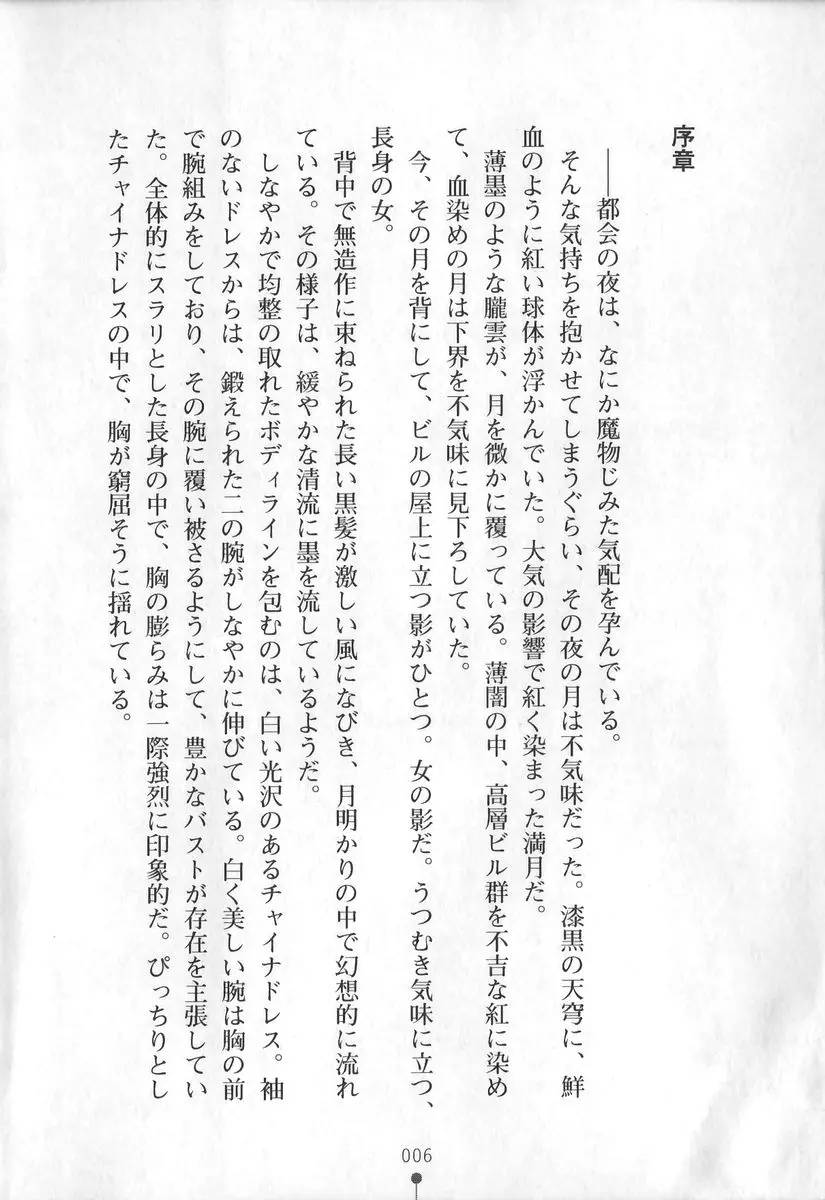 序章
――都会の夜は、なにか魔物じみた気配を孕んでいる。
そんな気持ちを抱かせてしまうぐらい、その夜の月は不気味だった。漆黒の天穹に、鮮
血のように紅い球体が浮かんでいた。大気の影響で紅く染まった満月だ。
薄墨のような朧雲が、月を微かに覆っている。薄闇の中、高層ビル群を不吉な紅に染め
て、血染めの月は下界を不気味に見下ろしていた。
今、その月を背にして、ビルの屋上に立つ影がひとつ。女の影だ。うつむき気味に立つ、
長身の女。
背中で無造作に束ねられた長い黒髪が激しい風になびき、月明かりの中で幻想的に流れ
ている。その様子は、緩やかな清流に墨を流しているようだ。
しなやかで均整の取れたボディラインを包むのは、白い光沢のあるチャイナドレス。袖
のないドレスからは、鍛えられた二の腕がしなやかに伸びている。白く美しい腕は胸の前
で腕組みをしており、その腕に覆い被さるようにして、豊かなバストが存在を主張してい
た。全体的にスラリとした長身の中で、胸の膨らみは一際強烈に印象的だ。ぴっちりとし
たチャイナドレスの中で、胸が窮屈そうに揺れている。
006